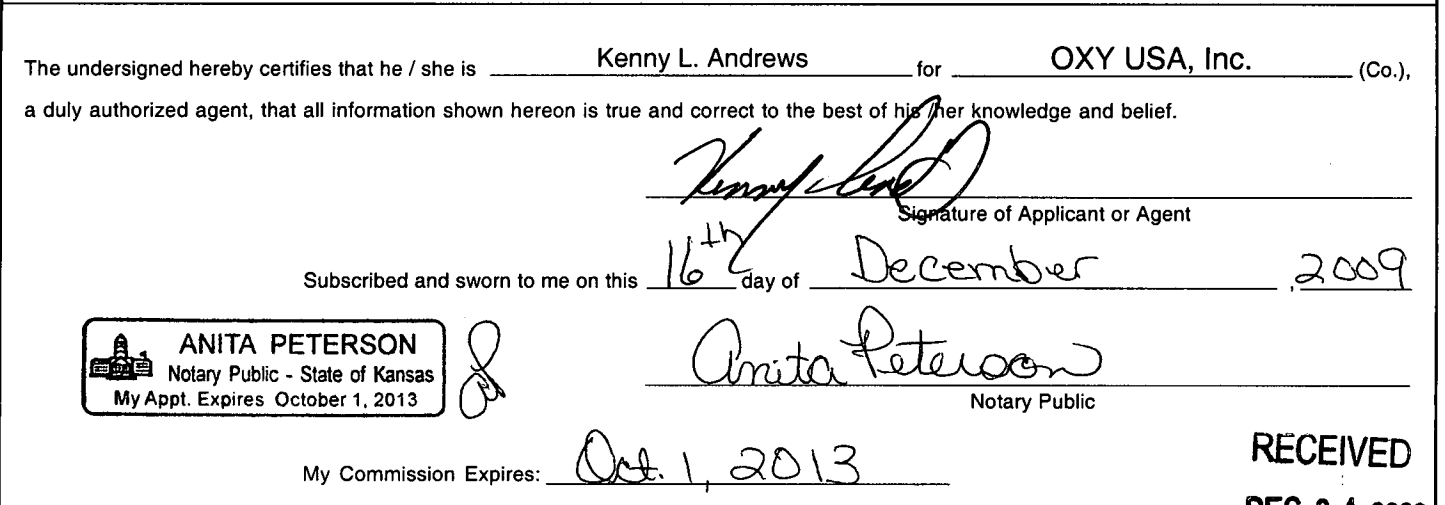 The undersigned hereby certifies that he / she is Kenny L. Andrews for OXY USA, Inc. (Co.),
a duly authorized agent, that all information shown hereon is true and correct to the best of his /her knowledge and belief.
Signature of Applicant or Agent
Subscribed and sworn to me on this 16th day of December , 2009
ANITA PETERSON
Notary Public - State of Kansas
My Appt. Expires October 1, 2013
Anita Peterson
Notary Public
My Commission Expires: Oct. 1, 2013
RECEIVED